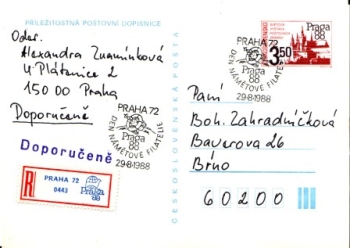 PŘÍLEŽITOSTNÁ POŠTOVNÍ DOPISNICE
Odes.
Alexandra Znamínková
U Plátenice 2
150 00 Praha
Doporučeně
Doporučeně
R
PRAHA 72
0443
Praga
88
PRAHA 72
DEN NÁMĚTOVÉ FILATELIE
Praga
88
29-8-1988
ČESKOSLOVENSKO
PRAHA 72
DEN NÁMĚTOVÉ FILATELIE
Praga
88
29-8-1988
Praga
88
3,50
Paní
Boh. Zahradníčková
Bauerova 26
Brno
60200